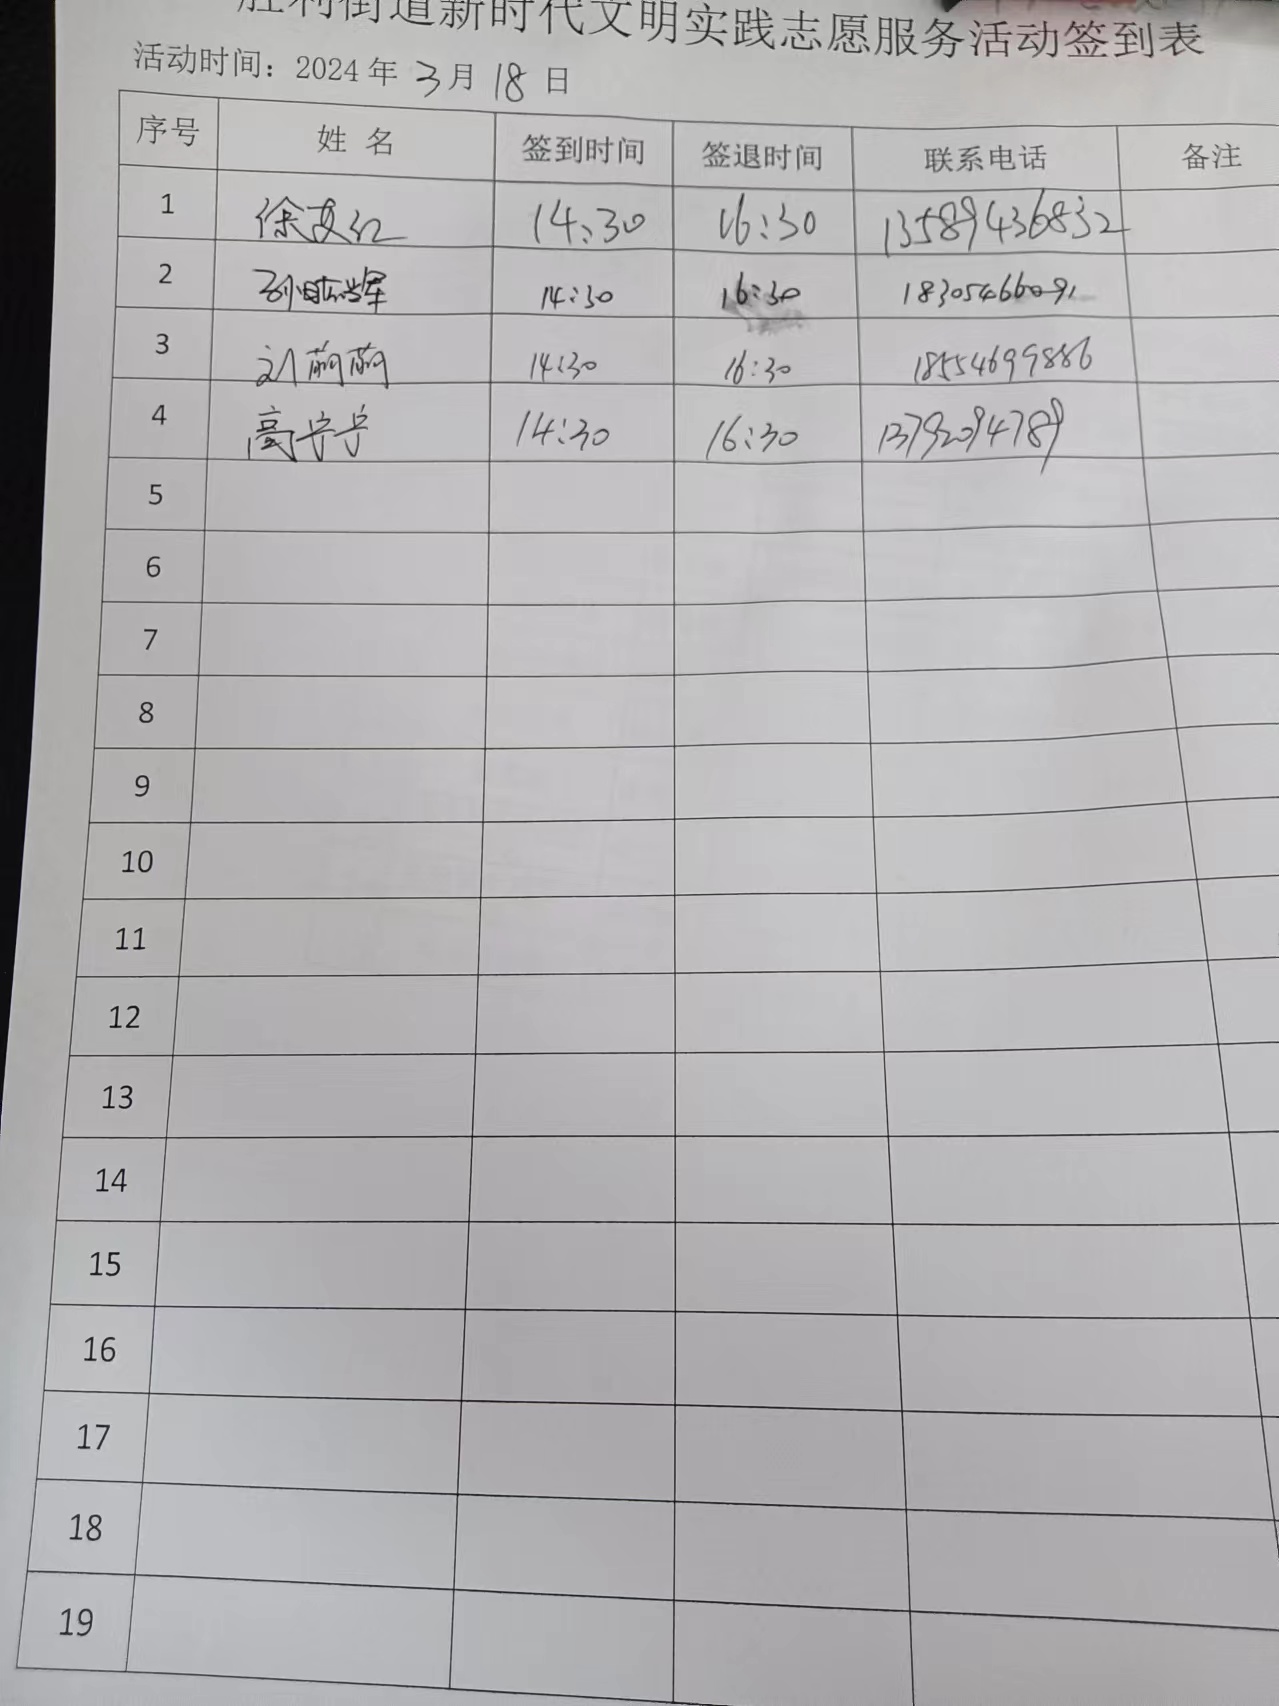 胜利街道新时代文明实践志愿服务活动签到表
活动时间：2024年 3月 18 日
序号 姓 名 签到时间 签退时间 联系电话 备注
1 徐艾红 14:30 16:30 13589436832
2 孙 14:30 16:30 18305466091
3 刘萌萌 14:30 16:30 18554699886
4 高宁宁 14:30 16:30 13792094789
5
6
7
8
9
10
11
12
13
14
15
16
17
18
19